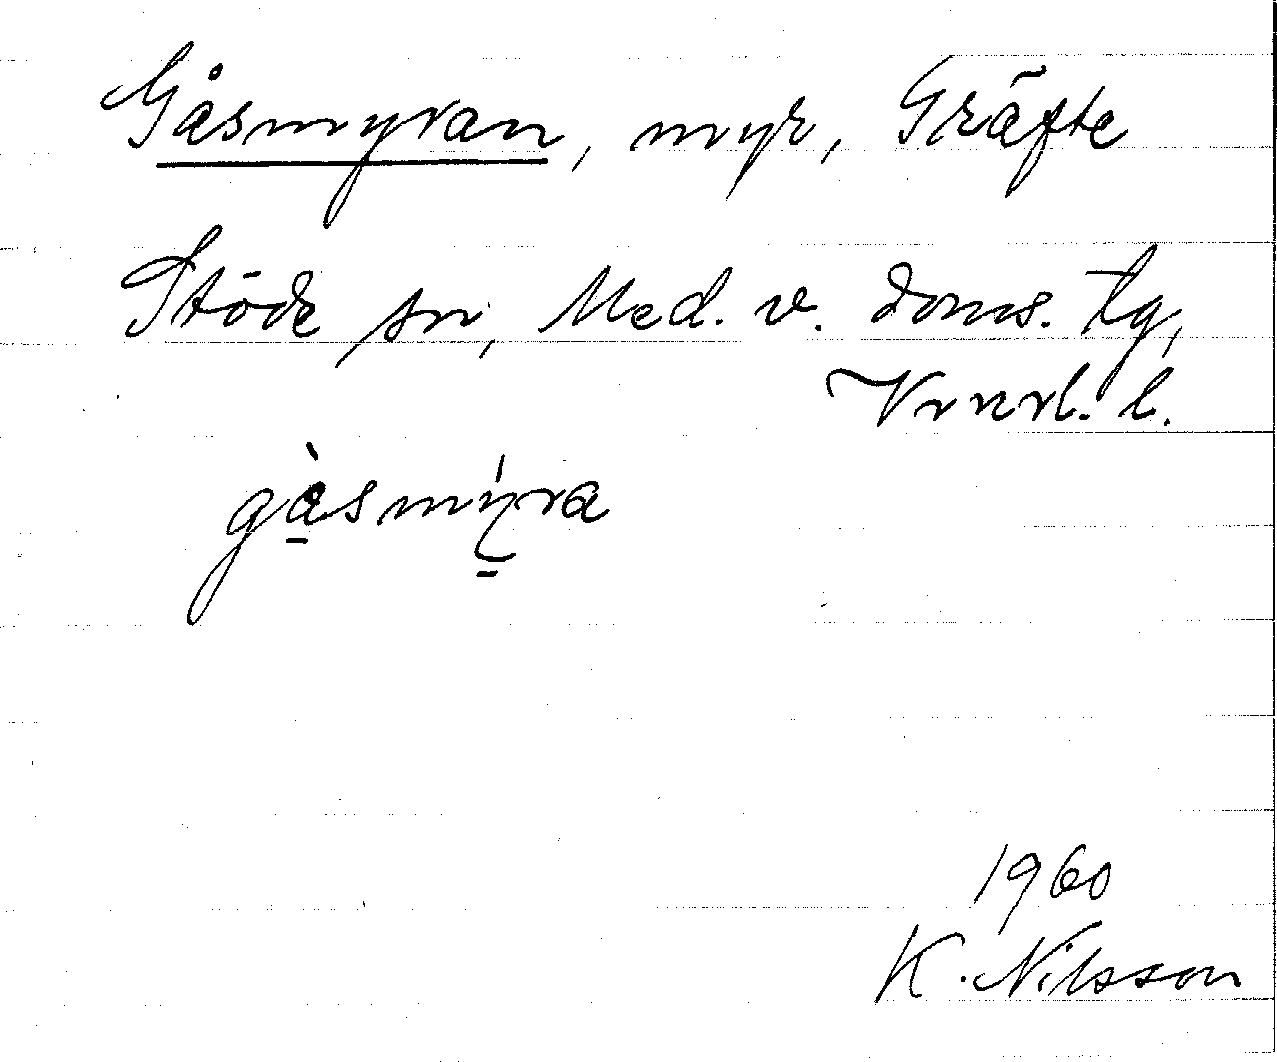 Gåsmyran, myr, Gräfte
Stöde sn, Med. v. doms. tg,
Vrnrl. l.
gàsmýra
1960
K. Nilsson